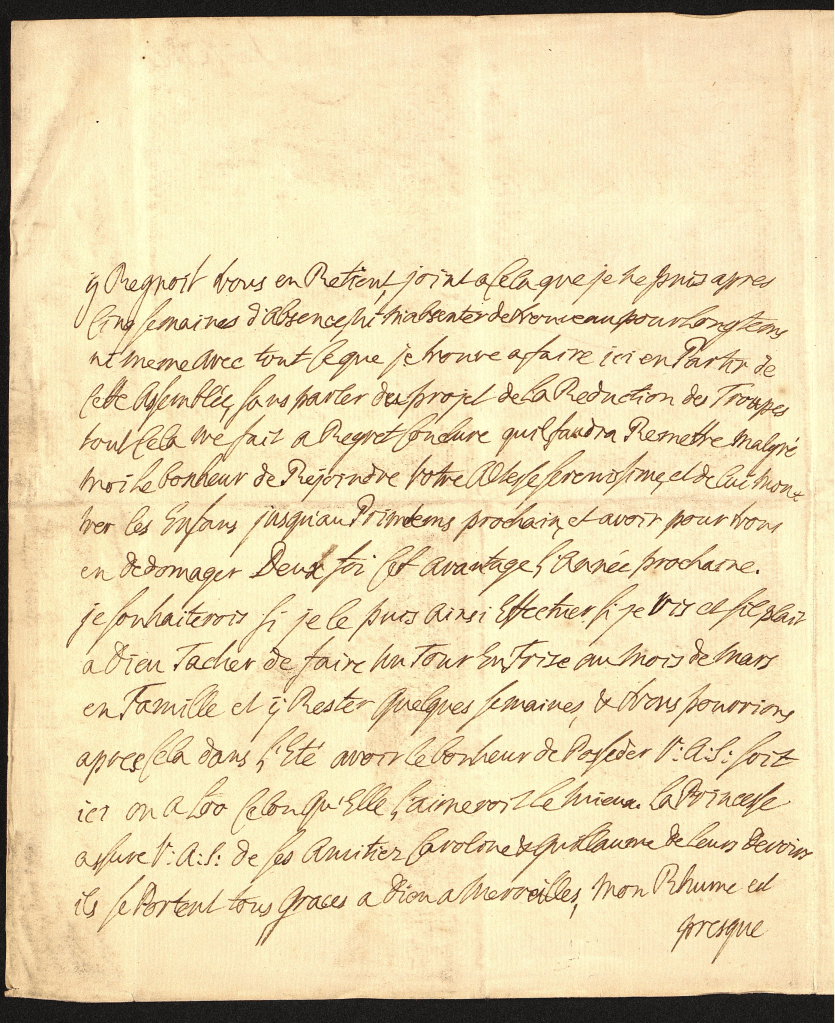 ÿ Regnoit nous en Retient, joint a Cela que je ne puis apres
Cinq semaines d'absence, ni m'absenter de nouveau pour longtems
ni meme avec tout Ce que je trouve a faire ici en Partir de
Cette Assemblée, sans parler du projet de la Reduction des Troupes
tout Cela me fait a Regret Conclure qu'il faudra Remettre malgré
moi le bonheur de Rejoindre Votre Altesse serenissime, et de lui mon=
trer les Enfans jusqu'au Printems prochain, et avoir pour nous
en dedomager Deux foi Cet avantage l'Année prochaine.
je souhaiterois si je le puis ainsi Effectuer si je vis et s'il plait
a Dieu Tacher de faire un Tour En Frize au mois de Mars
en Famille et ÿ Rester quelques semaines, & nous pourrions
apres Cela dans l'Eté avoir le bonheur de Posseder V: A: S: soit
ici ou a Loo selon qu'Elle l'aimeroit le mieux. La Princesse
assure V: A: S: de ses Amitiez Caroline & guillaume de leurs Devoirs
ils se Portent tous graces a Dieu a Merveilles, mon Rhume est
presque